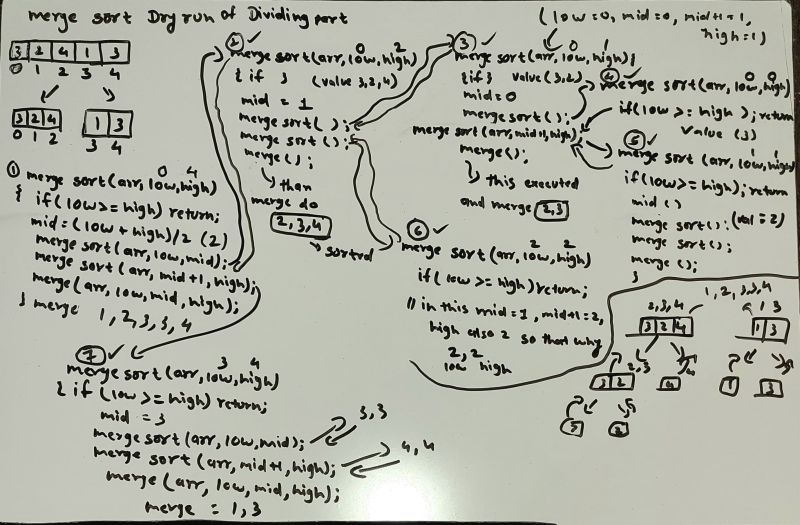 merge sort Dry run of Dividing part
3 2 4 1 3
0 1 2 3 4
3 2 4
0 1 2
1 3
3 4
①
0 4
merge sort(arr, low, high)
{ if(low>=high) return;
mid = (low + high)/2 (2)
merge sort(arr, low, mid);
merge sort (arr, mid+1, high);
merge(arr, low, mid, high);
} merge 1, 2, 3, 3, 4
② ✓
0 2
merge sort(arr, low, high)
{ if } (value 3, 2, 4)
mid = 1
merge sort( );
merge sort ( );
merge( );
than
merge do
2, 3, 4
sorted
(low=0, mid=0, mid+1=1,
high=1)
③ ✓
0 1
merge sort(arr, low, high);
{if} value(3,2)
mid=0
merge sort( );
merge sort (arr, mid+1, high);
merge();
this executed
and merge 2,3
④ ✓
0 0
merge sort (arr, low, high)
if(low >= high ); return
value (3)
⑤ ✓
1 1
merge sort (arr, low, high)
if(low>=high); return
mid ( )
merge sort(); (val = 2)
merge sort();
merge ();
}
⑥ ✓
2 2
merge sort (arr, low, high)
if( low >= high) return;
// in this mid=1, mid+1=2,
high also 2 so that why
2, 2
low high
⑦ ✓
3 4
merge sort (arr, low, high)
{ if (low >= high) return;
mid = 3
merge sort (arr, low, mid);
3,3
merge sort (arr, mid+1, high);
4, 4
merge (arr, low, mid, high);
merge = 1, 3
1, 2, 3, 3, 4
2, 3, 4
1 3
3 2 4
1 3
2, 3
4
3 2
4
1
3
3
2